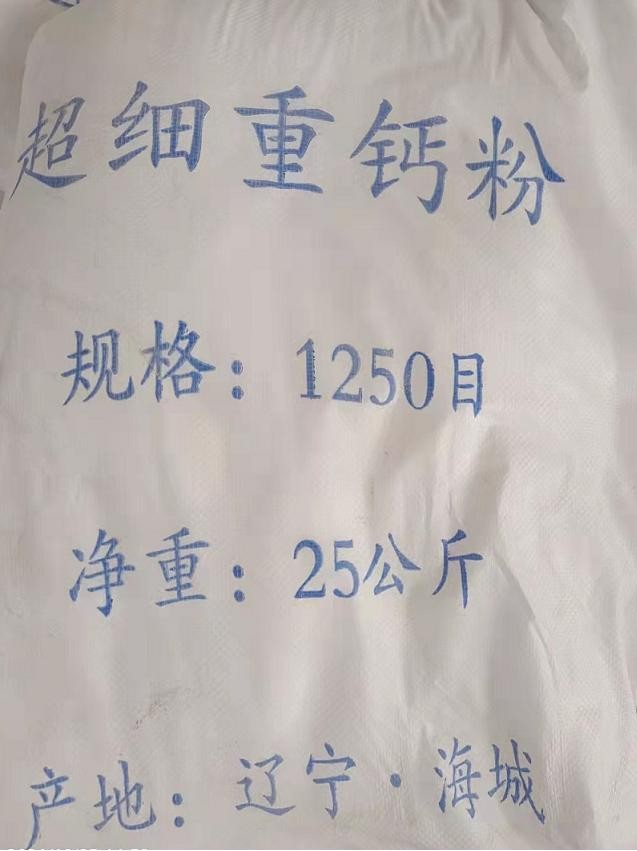 超细重钙粉
规格：1250目
净重：25公斤
产地：辽宁·海城